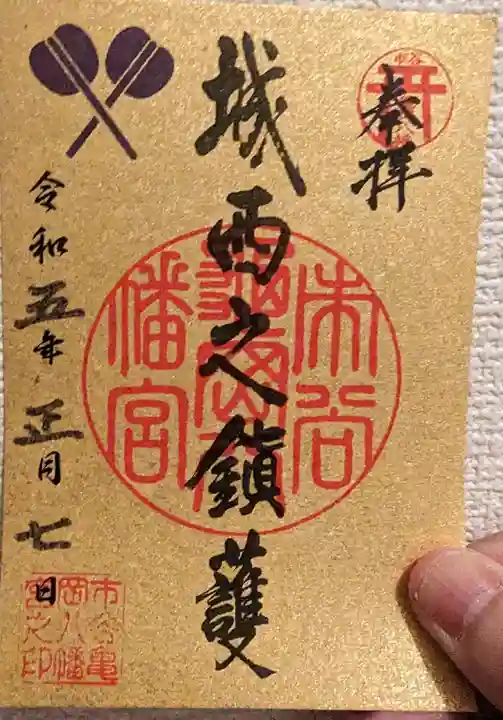 奉拝
城西之鎮護
市谷亀岡八幡宮
令和五年正月七日
市谷亀岡八幡宮之印